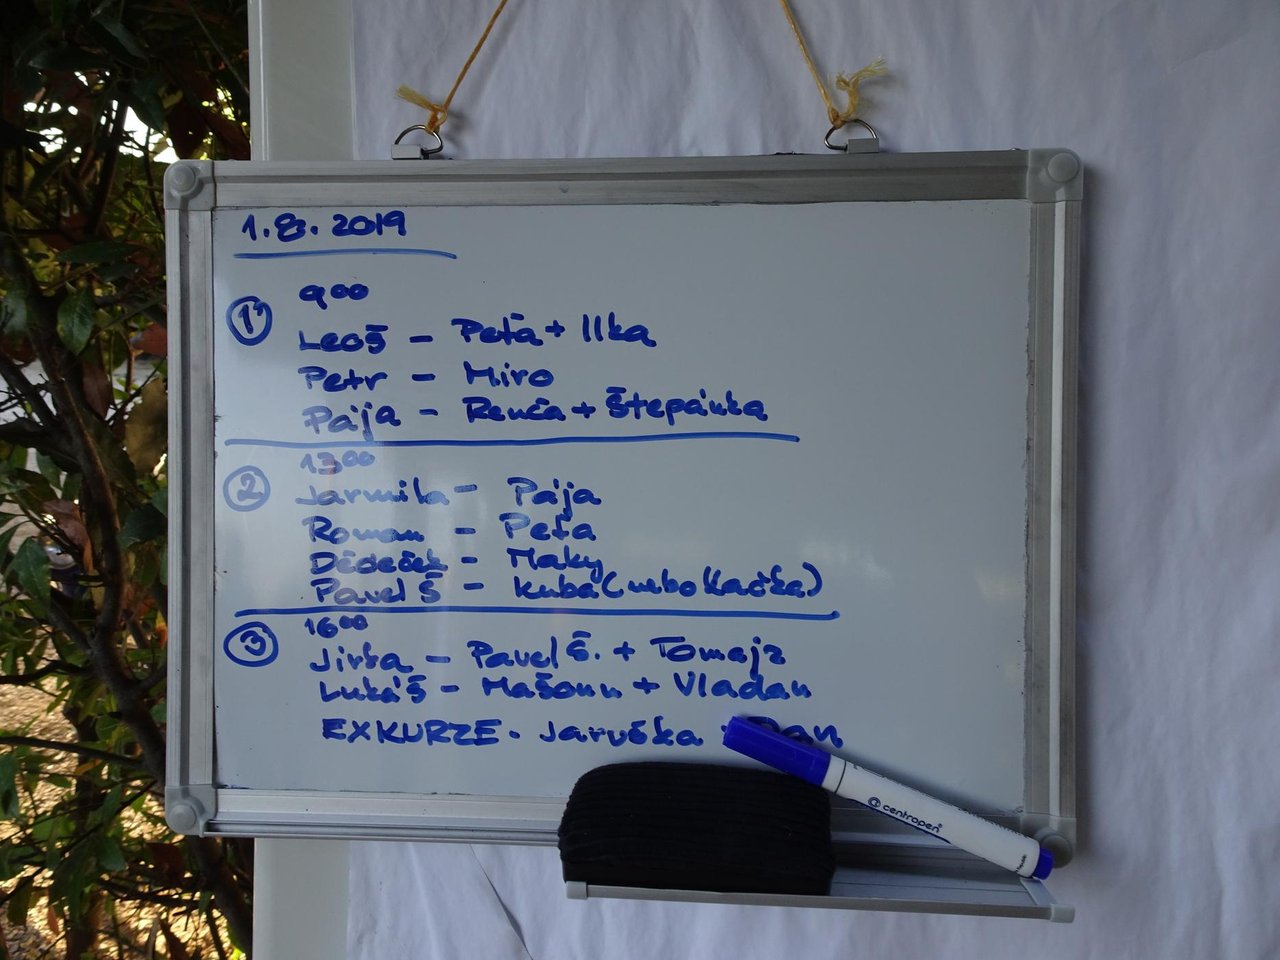 1.8.2019
① 9⁰⁰
Leoš - Peťa + Ilka
Petr - Miro
Pája - Renča + Štepánka
② 13⁰⁰
Jarmila - Pája
Roman - Peťa
Dědeček - Maky
Pavel Š - Kuba (nebo Kačka)
③ 16⁰⁰
Jirka - Pavel Š. + Tomajz
Lukáš - Mašoun + Vladan
EXKURZE - Jaruška
centropen